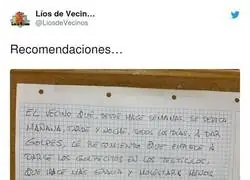 Líos de Vecin...
@LiosdeVecinos
Recomendaciones...
EL VECINO QUE, DESDE HACE SEMANAS, SE DEDICA
MAÑANA, TARDE Y NOCHE, TODOS LOS DÍAS, A DAR
GOLPES, LE RECOMIENDO QUE EMPIECE A
DARSE LOS GOLPECITOS EN LOS TESTÍCULOS,
QUE HACE MÁS GRACIA Y MOLESTARÁ MENOS